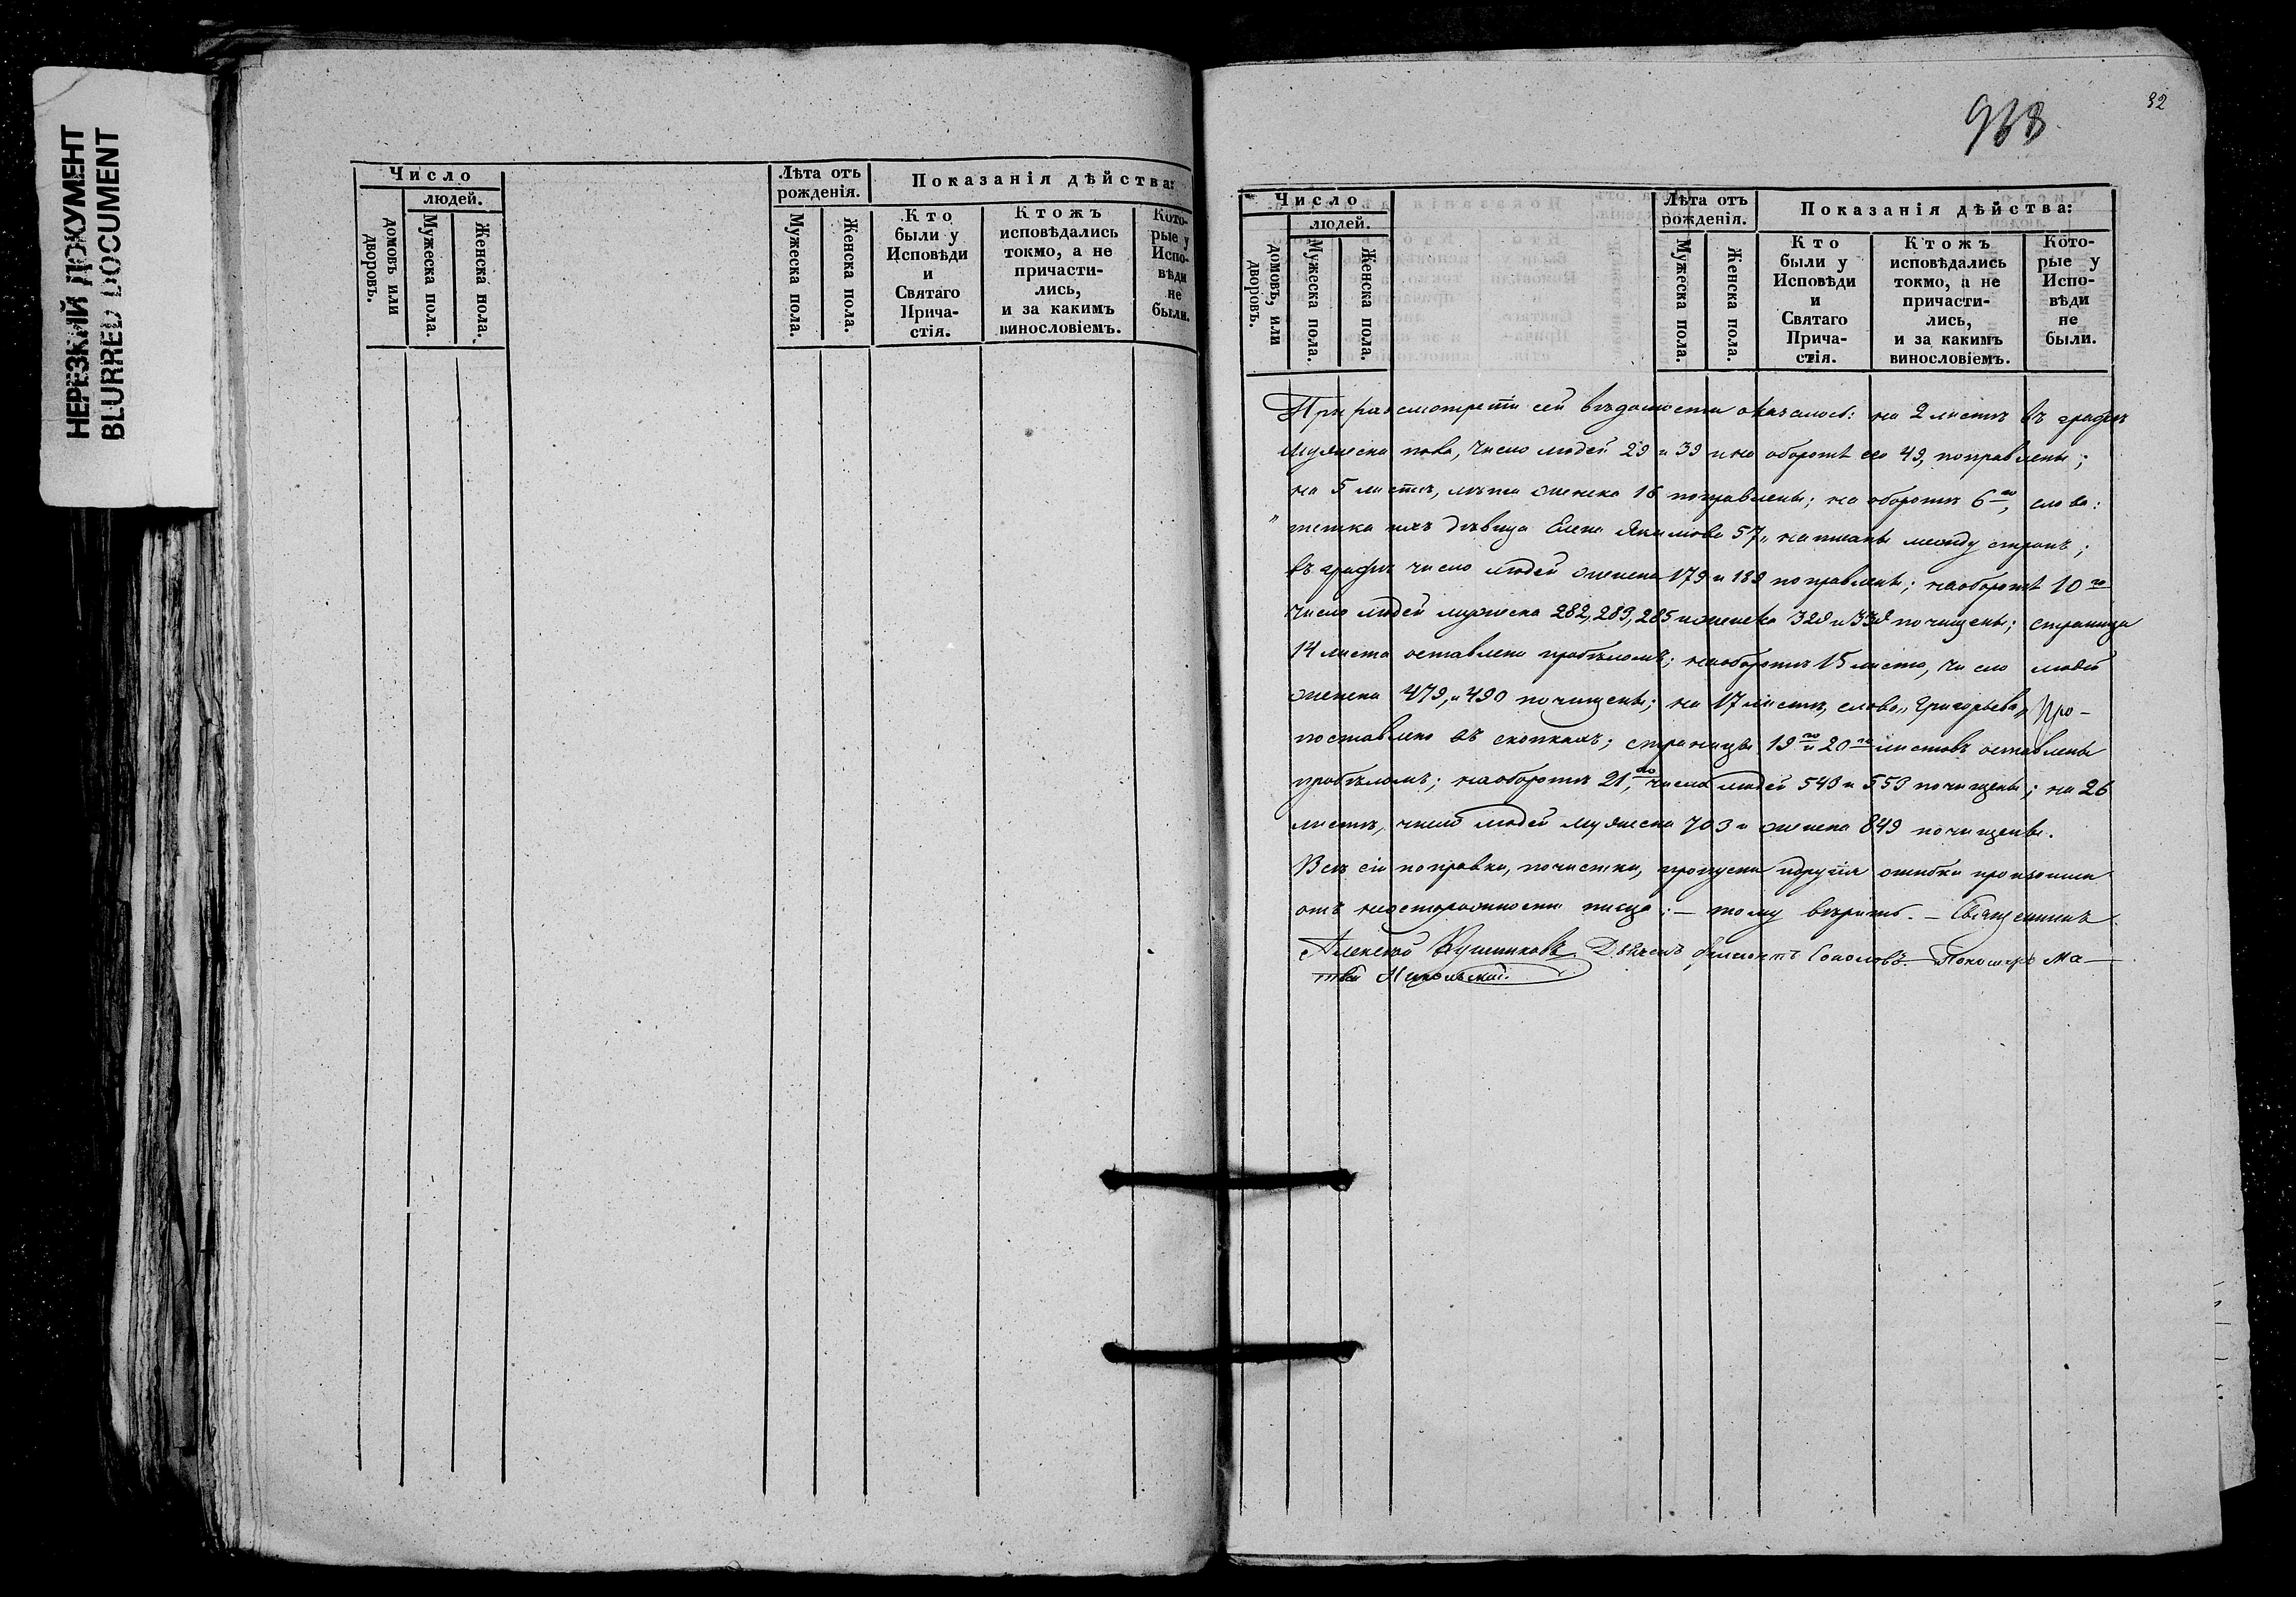 НЕРЕЗКИЙ ДОКУМЕНТ
BLURRED DOCUMENT
Число
людей.
домовъ или дворовъ.
Мужеска пола.
Женска пола.
Лѣта отъ рожденія.
Мужеска пола.
Женска пола.
Показанія дѣйства:
Кто
были у
Исповѣди
и
Святаго
Прича-
стія.
Ктожъ
исповѣдались
токмо, а не
причасти-
лись,
и за какимъ
винословіемъ.
Кото-
рые у
Испо-
вѣди
не
были.
938
32
Число
людей.
домовъ, или дворовъ.
Мужеска пола.
Женска пола.
Лѣта отъ рожденія.
Мужеска пола.
Женска пола.
Показанія дѣйства:
Кто
были у
Исповѣди
и
Святаго
Прича-
стія.
Ктожъ
исповѣдались
токмо, а не
причасти-
лись,
и за какимъ
винословіемъ.
Кото-
рые у
Испо-
вѣди
не
были.
При разсмотреніи сей вѣдомости оказалось: на 2 листѣ въ графѣ
мужеска пола, число людей 29 и 39 и на оборотѣ его 49, поправлены;
на 5 листѣ, лѣта женска 16 поправлены; на оборотѣ 6го, слова:
„тетка ихъ дѣвица Елена Якимова 57„ написаны между строкъ;
въ графѣ число людей женска 179 и 189 поправлены; на оборотѣ 10го
число людей мужеска 282, 283, 285 и женска 328 и 338 почищены; страница
14 листа оставлена пробѣломъ; на оборотѣ 15 листа, число людей
женска 479, и 490 почищены; на 17 листѣ, слово „Григорьева„ про-
поставлено въ скопкахъ; страницы 19го и 20го листовъ оставлены
пробѣломъ; на оборотѣ 21го, число людей 543 и 553 почищены; на 26
листѣ, число людей мужеска 703 и женска 849 почищены.
Всѣ сіи поправки, почистки, пропуски и другія ошибки произошли
отъ неосторожности писца; — тому вѣрить. — Священникъ
Алексѣй Кушниковъ Дьяконъ Соколовъ. Пономарь Ма-
твей Никольскій.